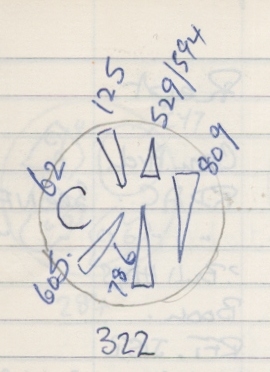 125
529/594
62
809
C
605.
786
322